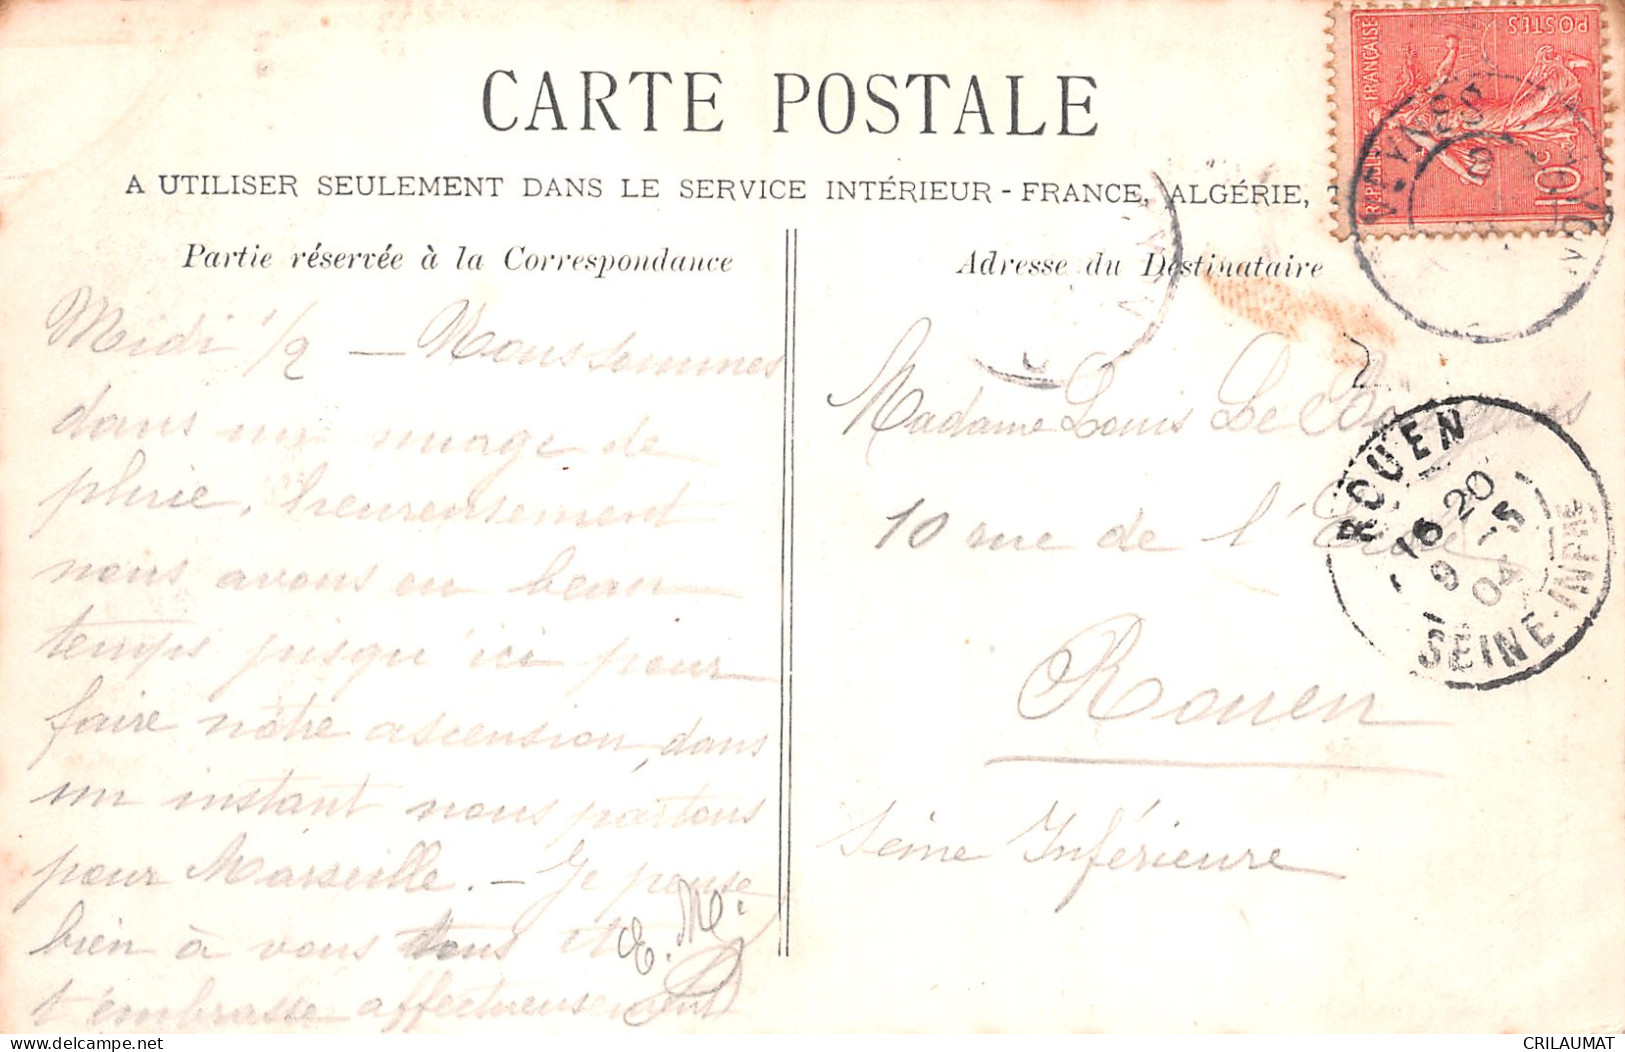 CARTE POSTALE
A UTILISER SEULEMENT DANS LE SERVICE INTÉRIEUR - FRANCE, ALGÉRIE,
Partie réservée à la Correspondance
Midi 1/2 — Nous sommes
dans un nuage de
pluie, heureusement
nous avons eu beau
temps jusqu'ici pour
faire nôtre ascension, dans
un instant nous partons
pour Marseille. — Je pense
bien à vous tous et
t'embrasse affectueusement
E. M.
Adresse du Destinataire
Madame Louis Le
10 rue de l'
Rouen
Seine Inférieure
REPUBLIQUE FRANÇAISE
POSTES
10c
VEYNES
ROUEN
16 20
9 -5
04
SEINE-INFRE
CRILAUMAT